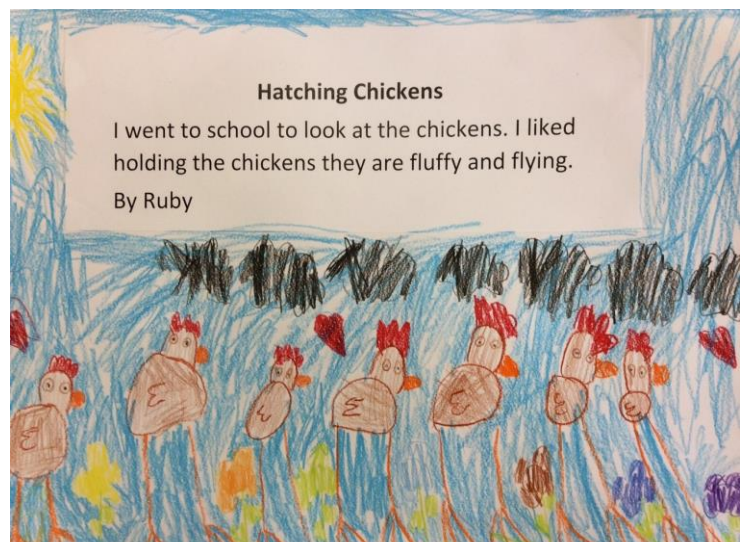 Hatching Chickens
I went to school to look at the chickens. I liked
holding the chickens they are fluffy and flying.
By Ruby